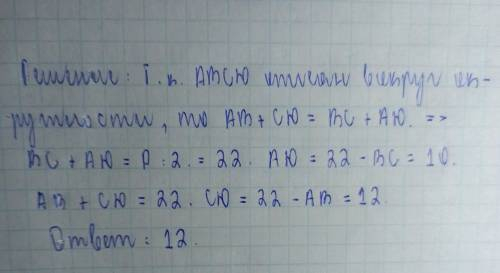 Решение: Т.к. АВСЮ описан вокруг ок-
ружности, то АВ + СЮ = ВС + АЮ. =>
ВС + АЮ = Р : 2. = 22. АЮ = 22 - ВС = 10.
АВ + СЮ = 22. СЮ = 22 - АВ = 12.
Ответ: 12.